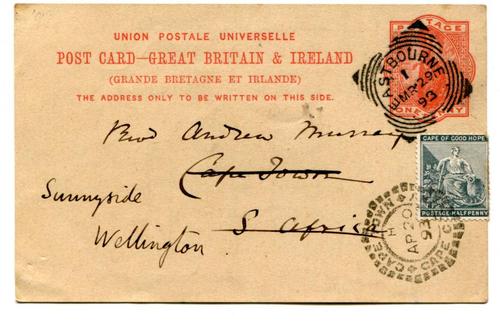 UNION POSTALE UNIVERSELLE
POST CARD—GREAT BRITAIN & IRELAND
(GRANDE BRETAGNE ET IRLANDE)
THE ADDRESS ONLY TO BE WRITTEN ON THIS SIDE.
POSTAGE
ONE PENNY
EASTBOURNE
MR 29
93
Revd Andrew Murray
Cape Town
S Africa
Sunnyside
Wellington
CAPE OF GOOD HOPE
POSTAGE·HALF·PENNY
CAPE TOWN
AP 20
93